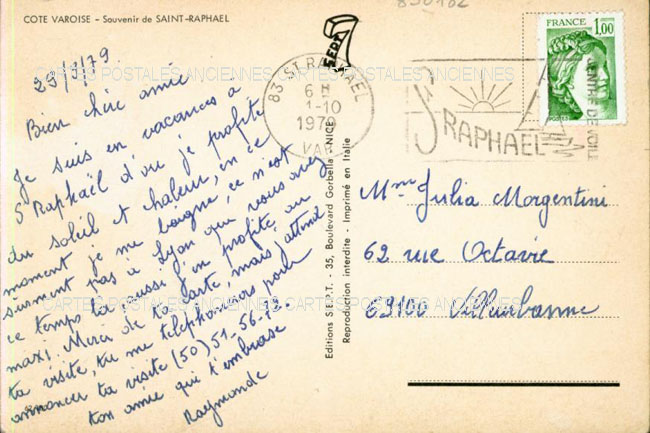 COTE VAROISE - Souvenir de SAINT-RAPHAEL
850102
SEPT
29/9/79
Bien chère amie
Je suis en vacances à
S Raphaël d'où je profite
du soleil et chaleur, en ce
moment je me baigne, ce n'est
surement pas à Lyon que vous avez
ce temps là, aussi j'en profite, au
maxi. Merci de ta carte mais j'attend
ta visite, tu me téléphoneras pour
annoncer ta visite (50) 51-56-13
ton amie qui t'embrasse
Raymonde
Editions S.E.P.T. - 35, Boulevard Gorbella - NICE
Reproduction interdite - Imprimé en Italie
83 ST RAPHAEL
6 H
1-10
1979
VAR
ST RAPHAEL
CENTRE DE VOILE
FRANCE
1,00
POSTES
Mme Julia Morgentini
62 rue Octavie
69100 Villeurbanne
CARTES POSTALES ANCIENNES CARTES POSTALES ANCIENNES
CARTES POSTALES ANCIENNES CARTES POSTALES ANCIENNES